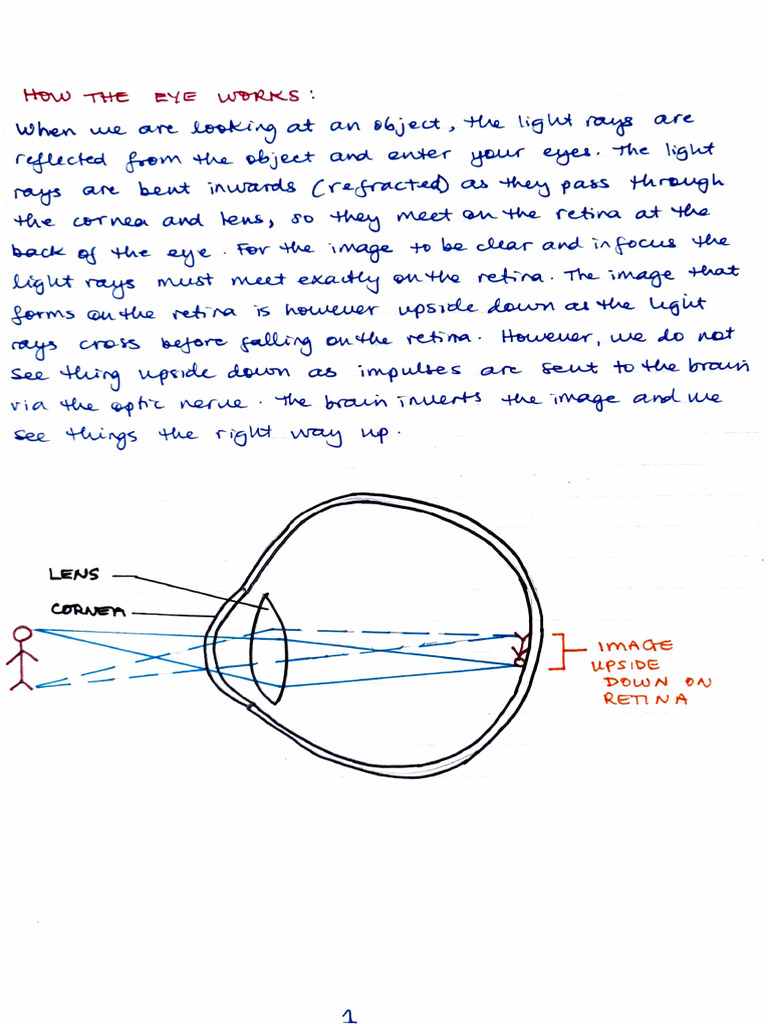 HOW THE EYE WORKS:
When we are looking at an object, the light rays are
reflected from the object and enter your eyes. The light
rays are bent inwards (refracted) as they pass through
the cornea and lens, so they meet on the retina at the
back of the eye. For the image to be clear and in focus the
light rays must meet exactly on the retina. The image that
forms on the retina is however upside down as the light
rays cross before falling on the retina. However, we do not
see thing upside down as impulses are sent to the brain
via the optic nerve. The brain inverts the image and we
see things the right way up.
LENS
CORNEA
IMAGE
UPSIDE
DOWN ON
RETINA
1